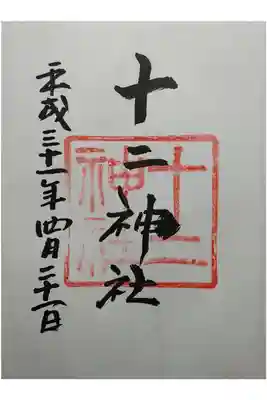 十二神社
平成三十一年四月二十一日
十二
神社